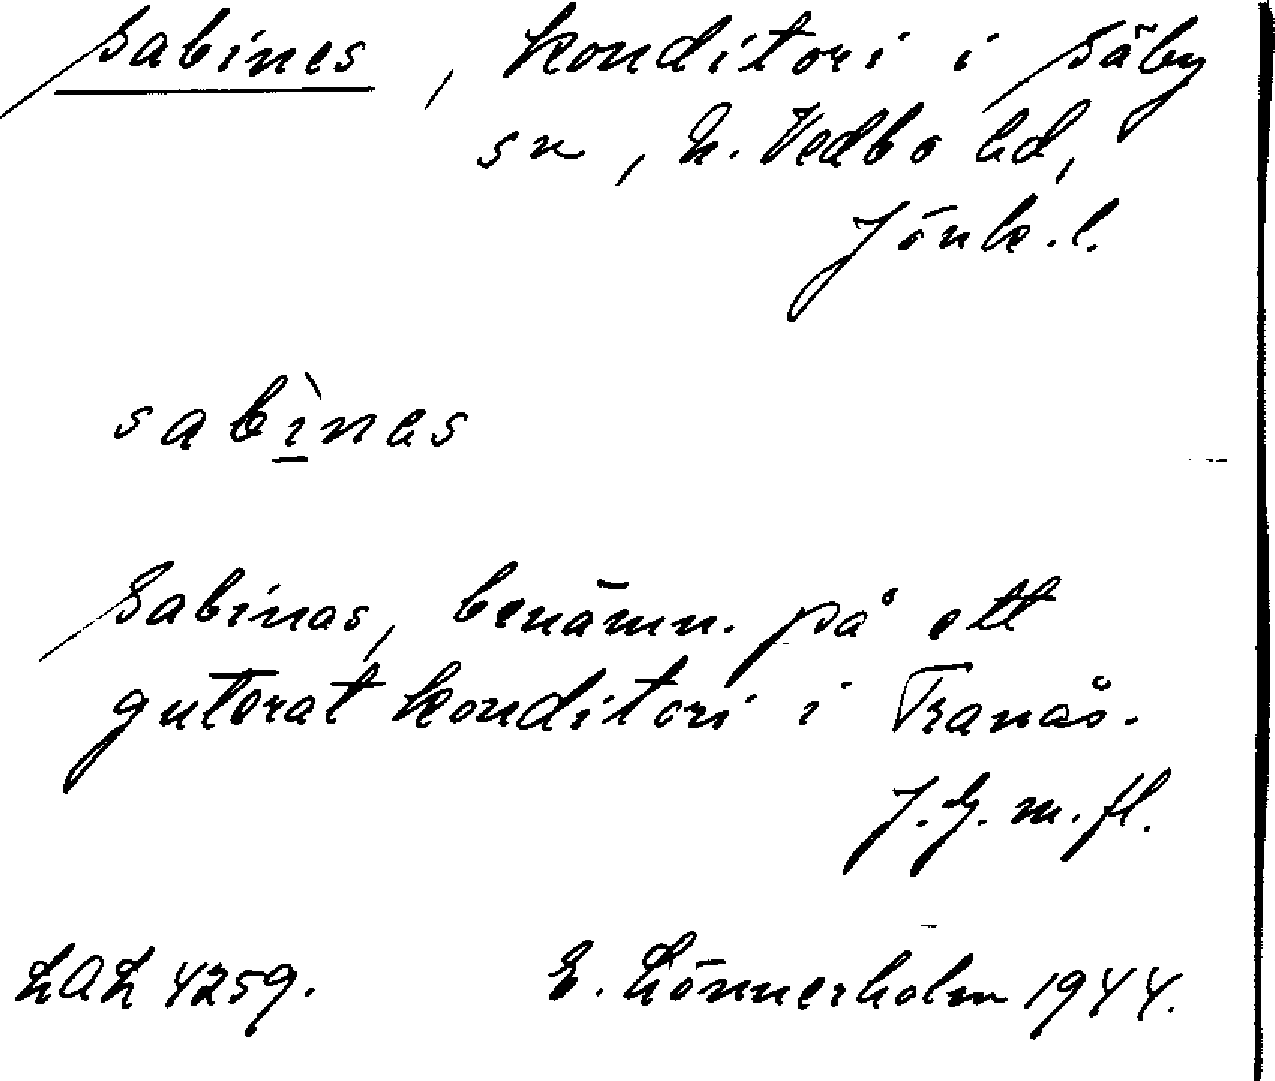 Sabines, konditori i Säby
sn, N. Vedbo hd,
Jönk.l.
sabìnes
Sabinas, benämn. på ett
gutorat konditori i Tranås.
J.G. m.fl.
LAL 4259. E. Lönnerholm 1944.